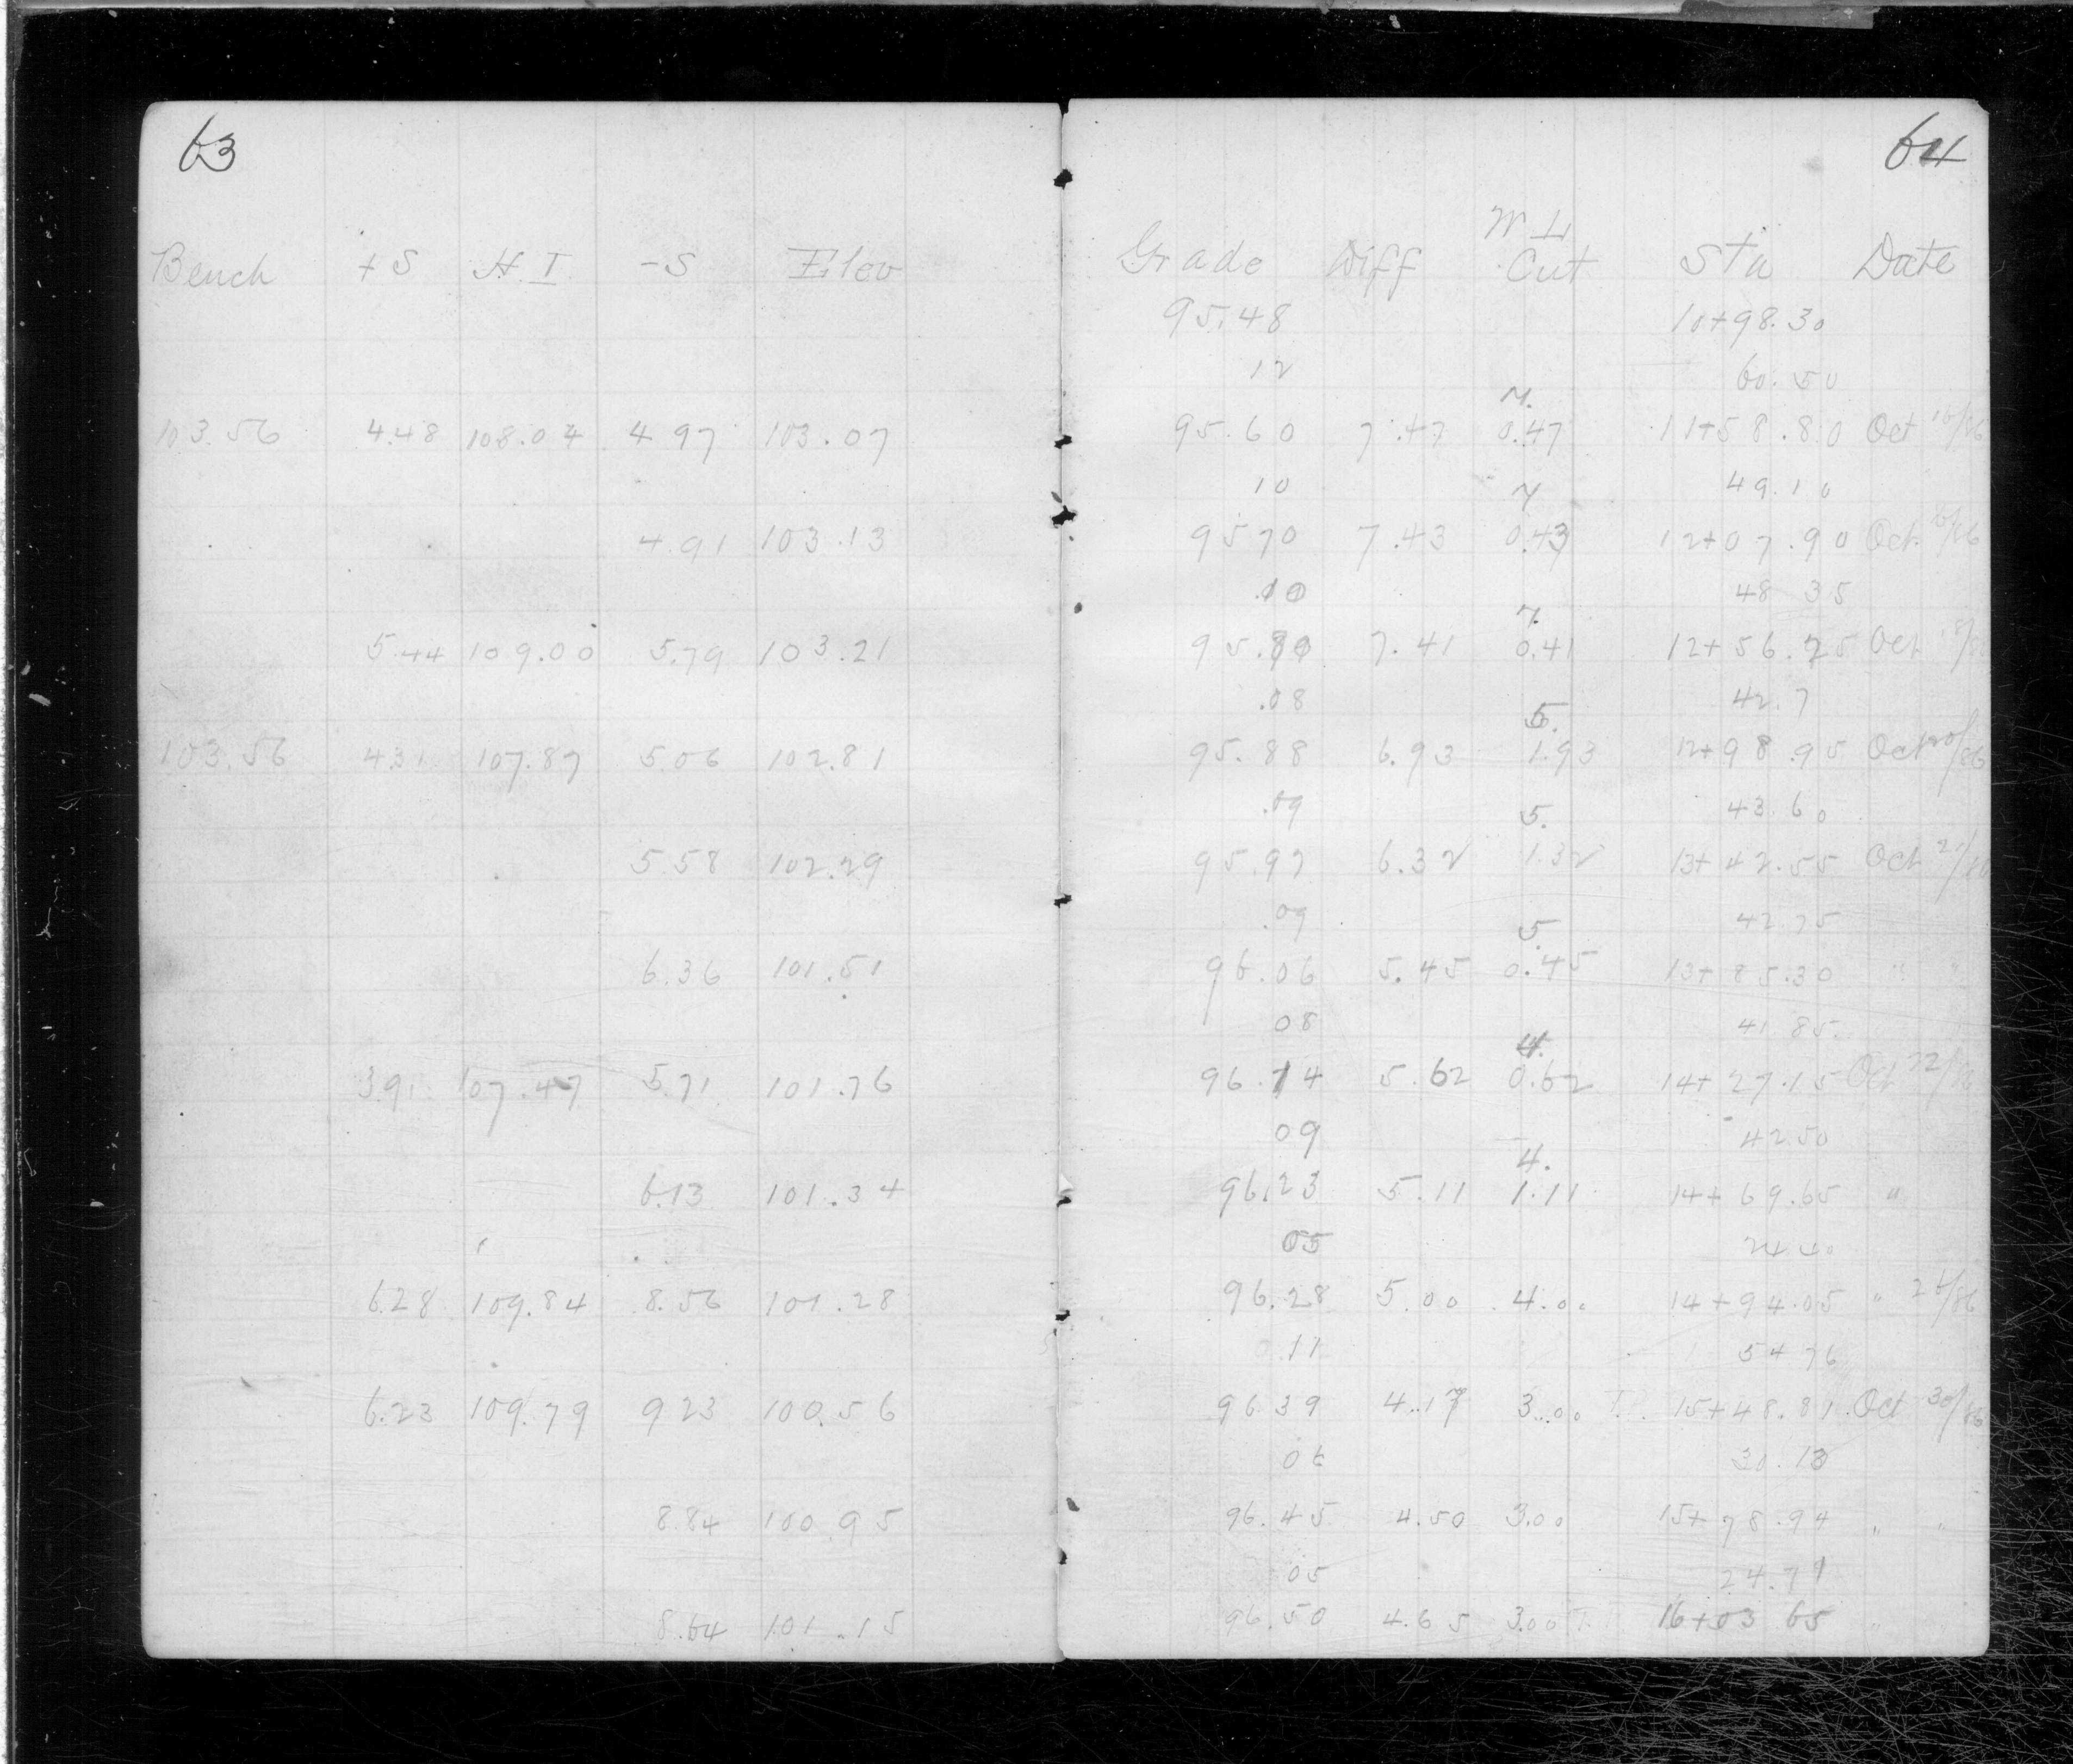 63
Bench +S H.I -S Elev
103.56 4.48 108.04 4 97 103.07
4.91 103.13
5.44 109.00 5.79 103.21
103.56 4.31 107.87 5.06 102.81
5.58 102.29
6.36 101.51
3.91 107.47 5.71 101.76
6.13 101.34
6.28 109.84 8.56 101.28
6.23 109.79 9 23 100.56
8.84 100.95
8.64 101.15
64
Grade Diff Cut Sta Date
95.48 10+98.30
12 60.50
7.
95.60 7.47 0.47 11+58.80 Oct
10 7 49.10
95 70 7.43 0.43 12+07.90 Oct
.10 48 35
7.
95.80 7.41 0.41 12+56.25 Oct
.08 42.7
5.
95.88 6.93 1.93 12+98.95 Oct 20/86
.09 5. 43.60
95.97 6.32 1.32 13+42.55 Oct 21/86
.09 5. 42.75
96.06 5.45 0.45 13+85.30 " "
08 41.85
4.
96.14 5.62 0.62 14+27.15 Oct 22/86
09 42.50
4.
96.23 5.11 1.11 14+69.65 "
05 24.40
96.28 5.00 4.00 14+94.05 " 26/86
11 54 76
96 39 4.17 3.00 T. 15+48.81 Oct 30/86
06 30.13
96.45 4.50 3.00 15+78.94 " "
05 24.71
96.50 4.65 3.00 T. 16+03 65 "